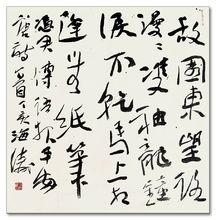 故園東望路
漫漫雙袖龍鍾
淚不乾馬上相
逢無紙筆
憑君傳語報平安
唐詩